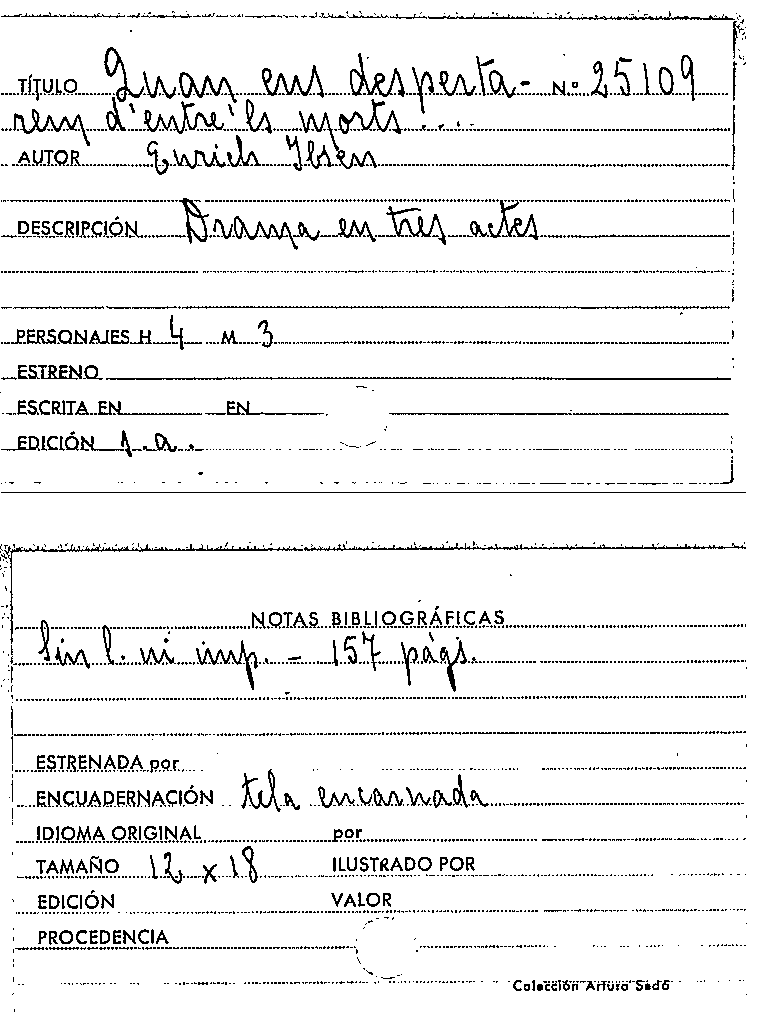 TÍTULO Quan ens desperta- Nº 25109
rem d'entre'ls morts!...
AUTOR Enrich Ibsen
DESCRIPCIÓN Drama en tres actes
PERSONAJES H 4 M 3
ESTRENO
ESCRITA EN EN
EDICIÓN s.a.
NOTAS BIBLIOGRÁFICAS
Sin l. ni imp. - 157 págs.
ESTRENADA por
ENCUADERNACIÓN tela encarnada
IDIOMA ORIGINAL por
TAMAÑO 12 x 18 ILUSTRADO POR
EDICIÓN VALOR
PROCEDENCIA
Colección Arturo Sedó